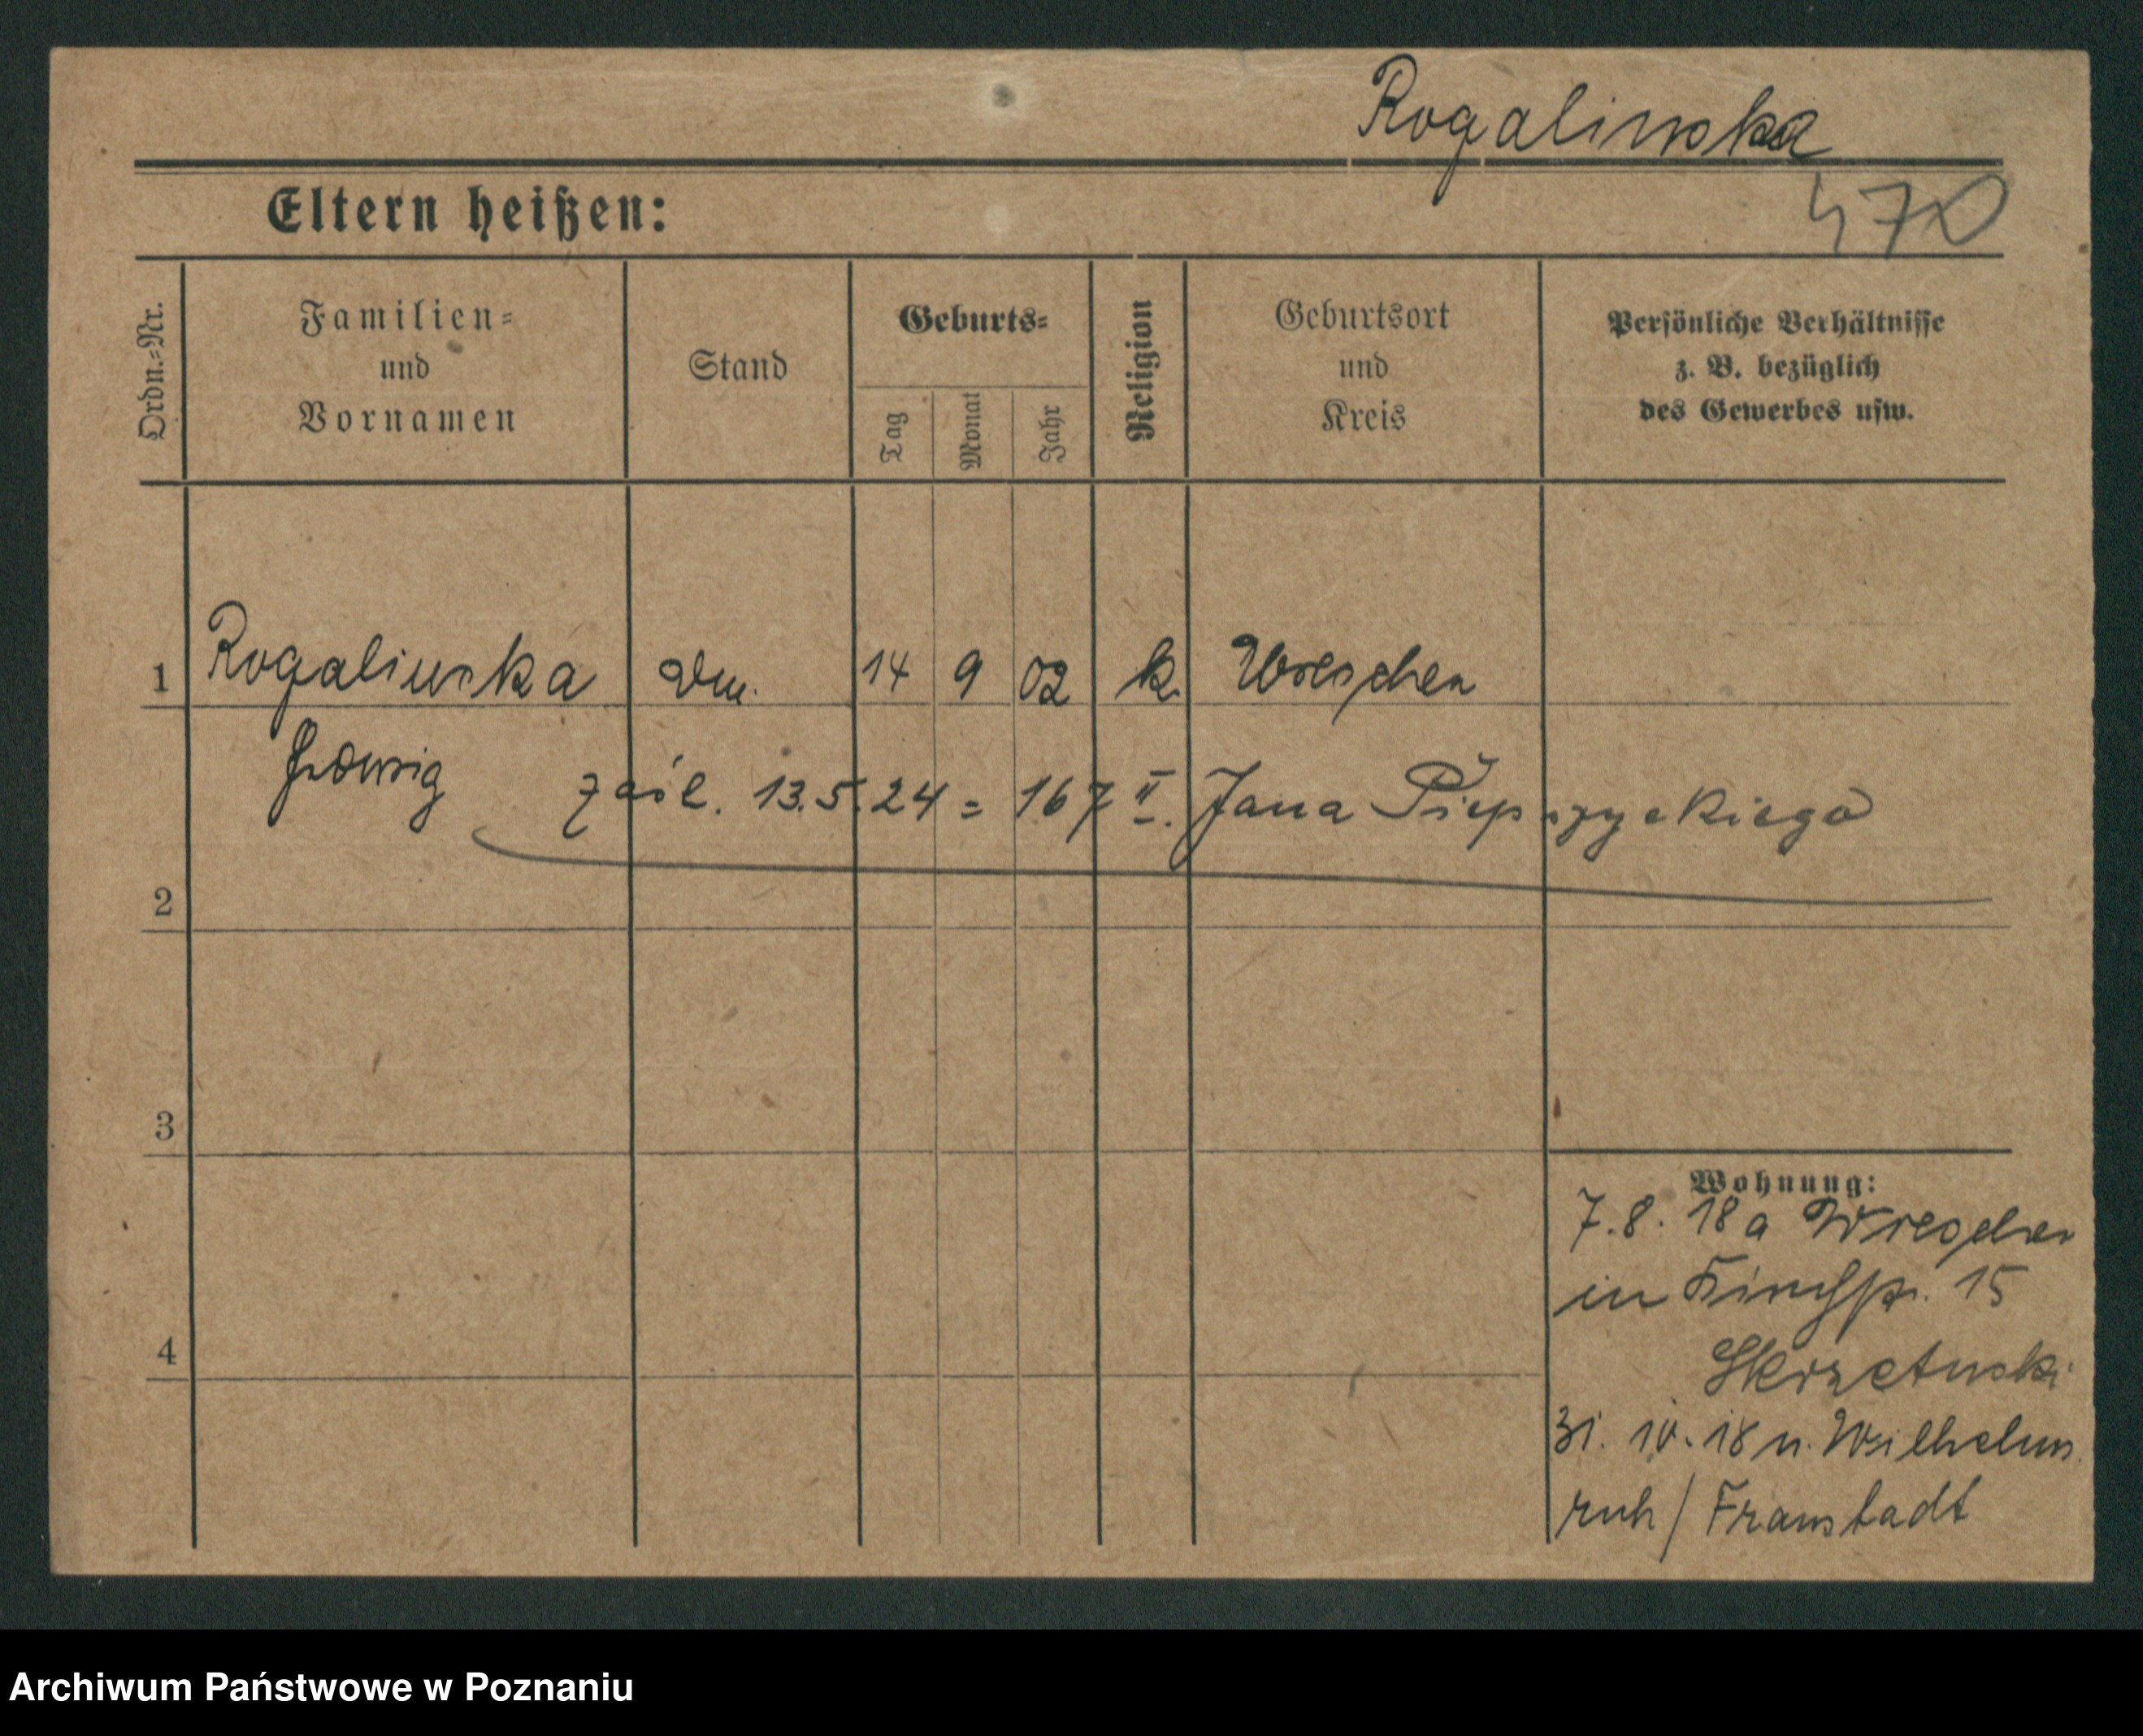 Rogalinska
470
Eltern heißen:
Ordn.=Nr.
Familien=
und
Vornamen
Stand
Geburts=
Tag
Monat
Jahr
Religion
Geburtsort
und
Kreis
Persönliche Verhältnisse
z. B. bezüglich
des Gewerbes usw.
1 Rogalinska 14 9 02 k. Wreschen
Hedwig zaśl. 13.5.24 = 167 II. Jana
2
3
4
Wohnung:
7.8.18 a Wreschen
in 15
Skrzetuski
31.10.18 n. Wilhelms
ruh / Fraustadt
Archiwum Państwowe w Poznaniu